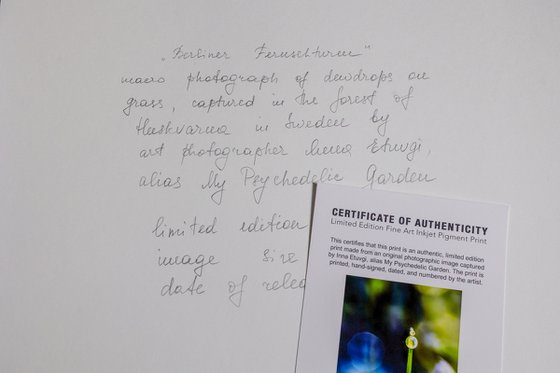 „Berliner Fernsehturm"
macro photograph of dewdrops on
grass, captured in the forest of
Huskvarna in Sweden by
art photographer Irina Etuvgi,
alias My Psychedelic Garden
limited edition
image size
date of relea
CERTIFICATE OF AUTHENTICITY
Limited Edition Fine Art Inkjet Pigment Print
This certifies that this print is an authentic, limited edition
print made from an original photographic image captured
by Irina Etuvgi, alias My Psychedelic Garden. The print is
printed, hand-signed, dated, and numbered by the artist.